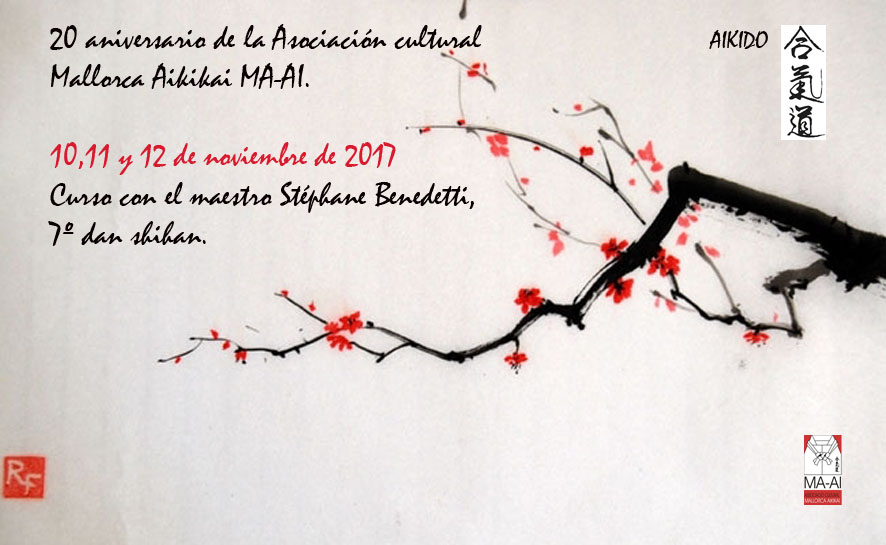 20 aniversario de la Asociación cultural
Mallorca Aikikai MA-AI.
10,11 y 12 de noviembre de 2017
Curso con el maestro Stéphane Benedetti,
7º dan shihan.
AIKIDO
合
氣
道
RF
MA-AI
MALLORCA AIKIKAI